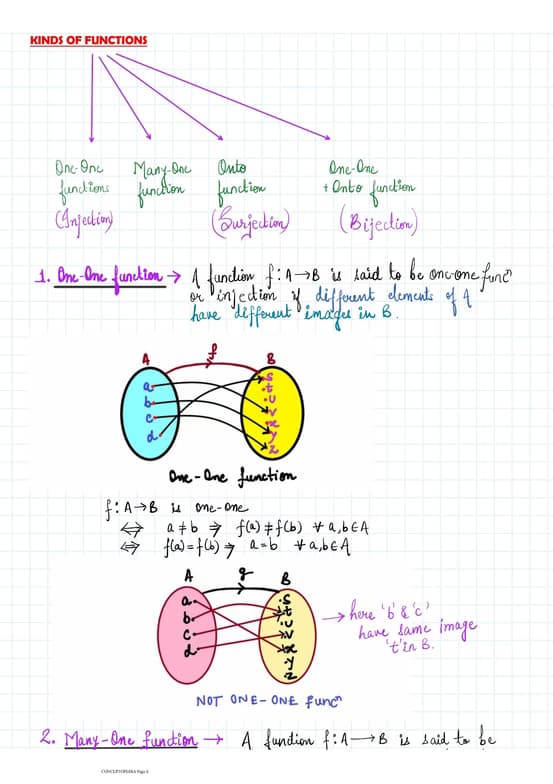 KINDS OF FUNCTIONS
One-One Many-One Onto One-One
functions function function + Onto function
(Injection) (Surjection) (Bijection)
1. One-One function → A function f: A→B is said to be one-one funcⁿ
or injection if different elements of A
have different images in B.
f
A B
a s
b t
c u
d v
x
y
z
One-One function
f: A→B is one-one
⇔ a ≠ b ⇒ f(a) ≠ f(b) ∀ a,b∈A
⇔ f(a) = f(b) ⇒ a = b ∀ a,b∈A
g
A B
a s
b t
c u
d v
x
y
z
→ here 'b' & 'c'
have same image
't' in B.
NOT ONE-ONE funcⁿ
2. Many-One function → A function f: A→B is said to be
CONCEPTOPEDIA Page 6